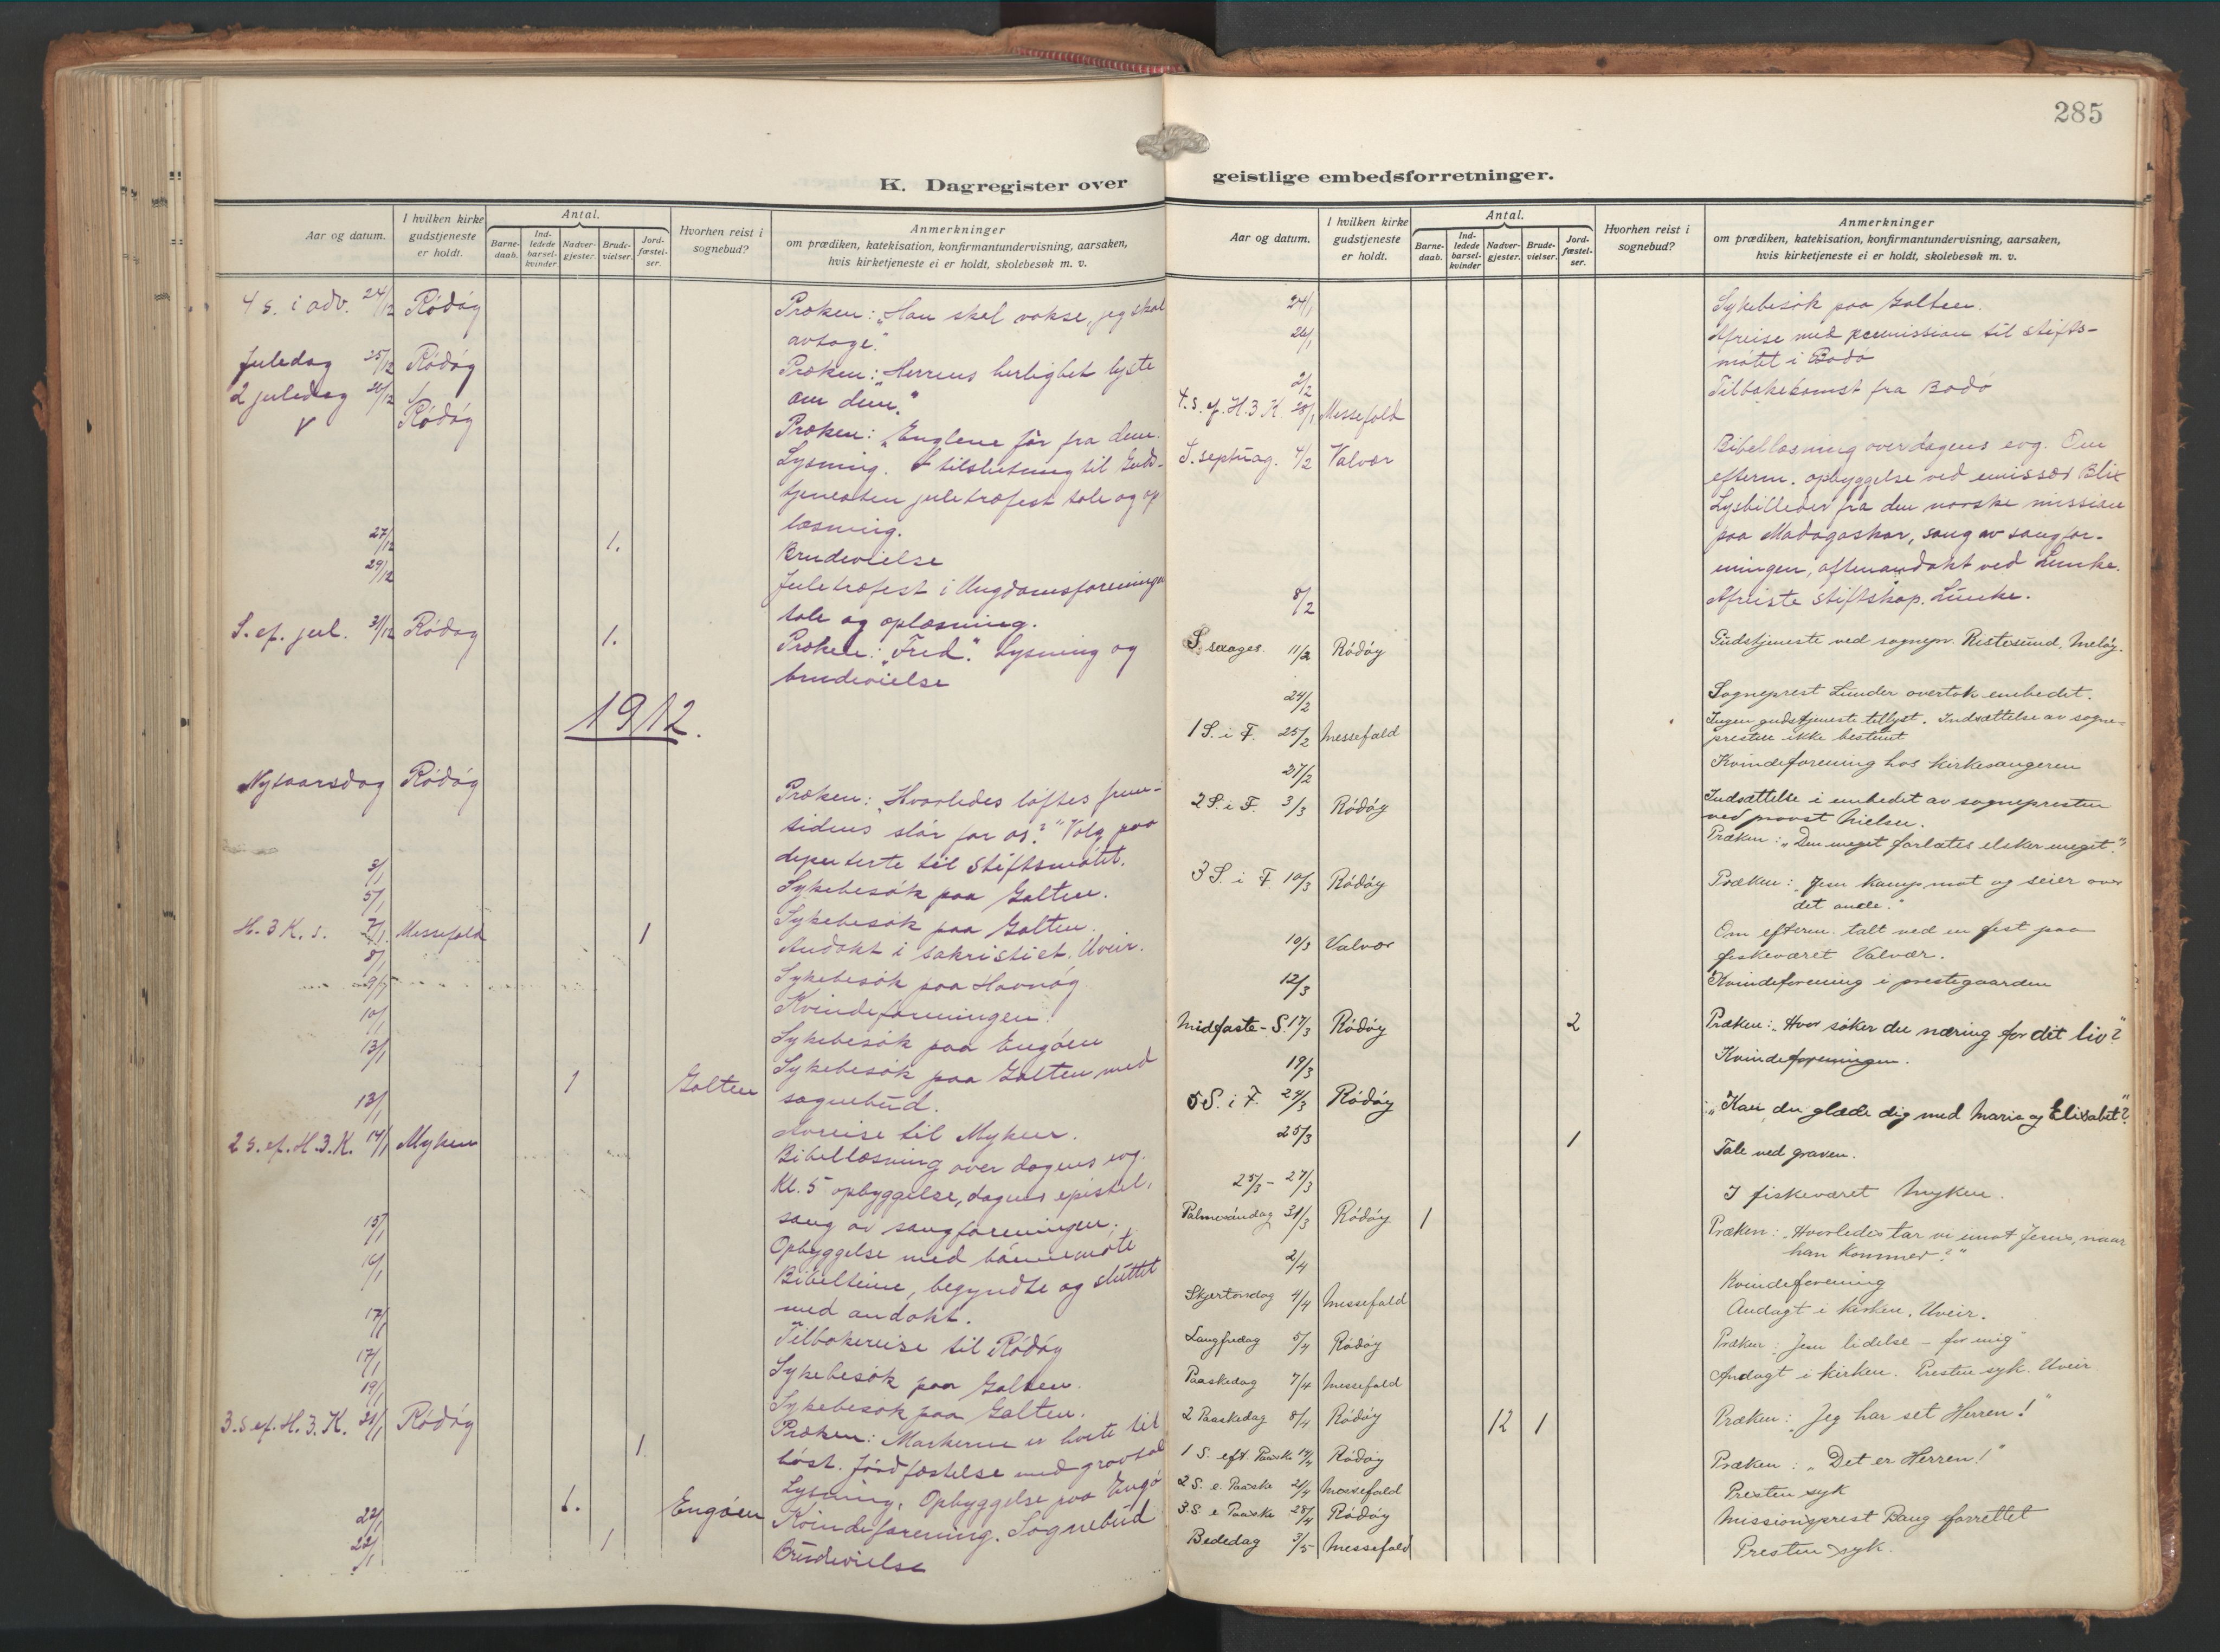 285
K. Dagregister over geistlige embedsforretninger.
Aar og datum. I hvilken kirke gudstjeneste er holdt. Antal. Barne-daab. Ind-ledede barsel-kvinder. Nadver-gjester. Brude-vielser. Jord-fæstel-ser. Hvorhen reist i sognebud? Anmerkninger om prædiken, katekisation, konfirmantundervisning, aarsaken, hvis kirketjeneste ei er holdt, skolebesøk m. v.
4 s. i adv. 24/12 Rödöy Præken: "Han skal vokse, jeg skal
avtage."
Juledag 25/12 Rödöy Præken: "Herrens herlighet lyste
om dem."
2 juledag 26/12 Rödöy Præken: "Englene för fra dem.
Lysning. I tilslutning til Guds-
tjenesten juletræfest tale og op
læsning.
27/12 1. Brudevielse
29/12 Juletræfest i Ungdomsforeningen
tale og oplæsning.
S. ef. jul. 31/12 Rödöy 1. Præken: "Fred". Lysning og
brudevielse
1912.
Nytaarsdag Rödöy Præken: "Hvorledes löftes frem-
tidens slör for os?" Valg paa
deputerte til Stiftsmötet.
3/1 Sykebesök paa Galten.
5/1 Sykebesök paa Galten.
H. 3 K. s. 7/1 Messefold 1 Andakt i sakristiet. Uveir.
8/1 Sykebesök paa Havnöy
9/1 Kvindeforeningen.
10/1 Sykebesök paa Engöen
13/1 1 Galten Sykebesök paa Galten med
sognebud.
13/1 Avreise til Myken.
2 s. ef. H. 3. K. 14/1 Myken Bibellæsning over dagens evg.
Kl. 5 opbyggelse, dagens epistel,
sang av sangforeningen.
15/1 Opbyggelse med bönnemöte
16/1 Bibeltime, begyndte og sluttet
med andakt.
17/1 Tilbakereise til Rödöy
17/1 Sykebesök paa Galten.
19/1 Sykebesök paa Galten.
3. s. ef. H. 3. K. 21/1 Rödöy 1 Præken: Markerne er hvite til
höst. Jordfæstelse med gravtal
Lysning. Opbyggelse paa Engö
22/1 1. Engöen Kvindeforening. Sognebud
23/1 1 Brudevielse
Aar og datum. I hvilken kirke gudstjeneste er holdt. Antal. Barne-daab. Ind-ledede barsel-kvinder Nadver-gjester. Brude-vielser. Jord-fæstel-ser. Hvorhen reist i sognebud? Anmerkninger om prædiken, katekisation, konfirmantundervisning, aarsaken, hvis kirketjeneste ei er holdt, skolebesøk m. v.
24/1 Sykebesök paa Galten.
26/1 Afreise med permission til stifts-
mötet i Bodö
2/2 Tilbakekomst fra Bodö
4. s. ef. H. 3 K 28/1 Messefold
S. septuag. 4/2 Valvær Bibellæsning over dagens evg. Om
efterm. opbyggelse ved emissær Blix
Lysbilleder fra den norske mission
paa Madagaskar, sang av sangfor-
eningen, aftenandakt ved Lunke.
8/2 Afreiste stiftskap. Lunke.
S. sexages. 11/2 Rödöy Gudstjeneste ved sognepr. Ristesund, Melöy.
24/2 Sogneprest Lunder overtok embedet.
1 S. i F. 25/2 Messefold Ingen gudstjeneste tillyst. Indsættelse av sogne-
presten ikke bestemt
27/2 Kvindeforening hos kirkesangeren
2 S. i F. 3/3 Rödöy Indsættelse i embedet av sognepresten
ved provst Nielsen.
Præken: "Den meget forlates elsker meget."
3 S. i F. 10/3 Rödöy Præken: "Jesu kamp mot og seier over
det onde."
10/3 Valvær Om efterm. talt ved en fest paa
fiskeværet Valvær.
12/3 Kvindeforening i prestegaarden
Midfaste-S. 17/3 Rödöy 2 Præken: "Hvor söker du næring for dit liv?"
19/3 Kvindeforeningen.
5 S. i F. 24/3 Rödöy "Kan du glæde dig med Maria og Elisabet"?
25/3 1 Tale ved graven.
25/3 - 27/3 I fiskeværet Myken.
Palmesöndag 31/3 Rödöy 1 Præken: "Hvorledes tar vi imot Jesus, naar
han kommer?"
2/4 Kvindeforening
Skjertorsdag 4/4 Messefold Andagt i kirken. Uveir.
Langfredag 5/4 Rödöy Præken: "Jesu lidelse - for mig"
Paaskedag 7/4 Messefold Andagt i kirken. Presten syk. Uveir
2 Paaskedag 8/4 Rödöy 12 1 Præken: "Jeg har set Herren!"
1 S. eft. Paaske 14/4 Rödöy Præken: "Det er Herren!"
2 S. e. Paaske 21/4 Messefold Presten syk
3. S. e. Paaske 28/4 Rödöy Missionsprest Baug forrettet
Bededag 3/5 Messefold Presten syk.